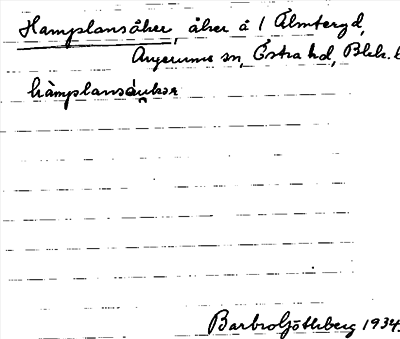 Hamplansåker, åker å 1 Älmteryd,
Augerums sn, Östra hd, Blek. l
hàmplansåukər
Barbro Götlberg 1934.